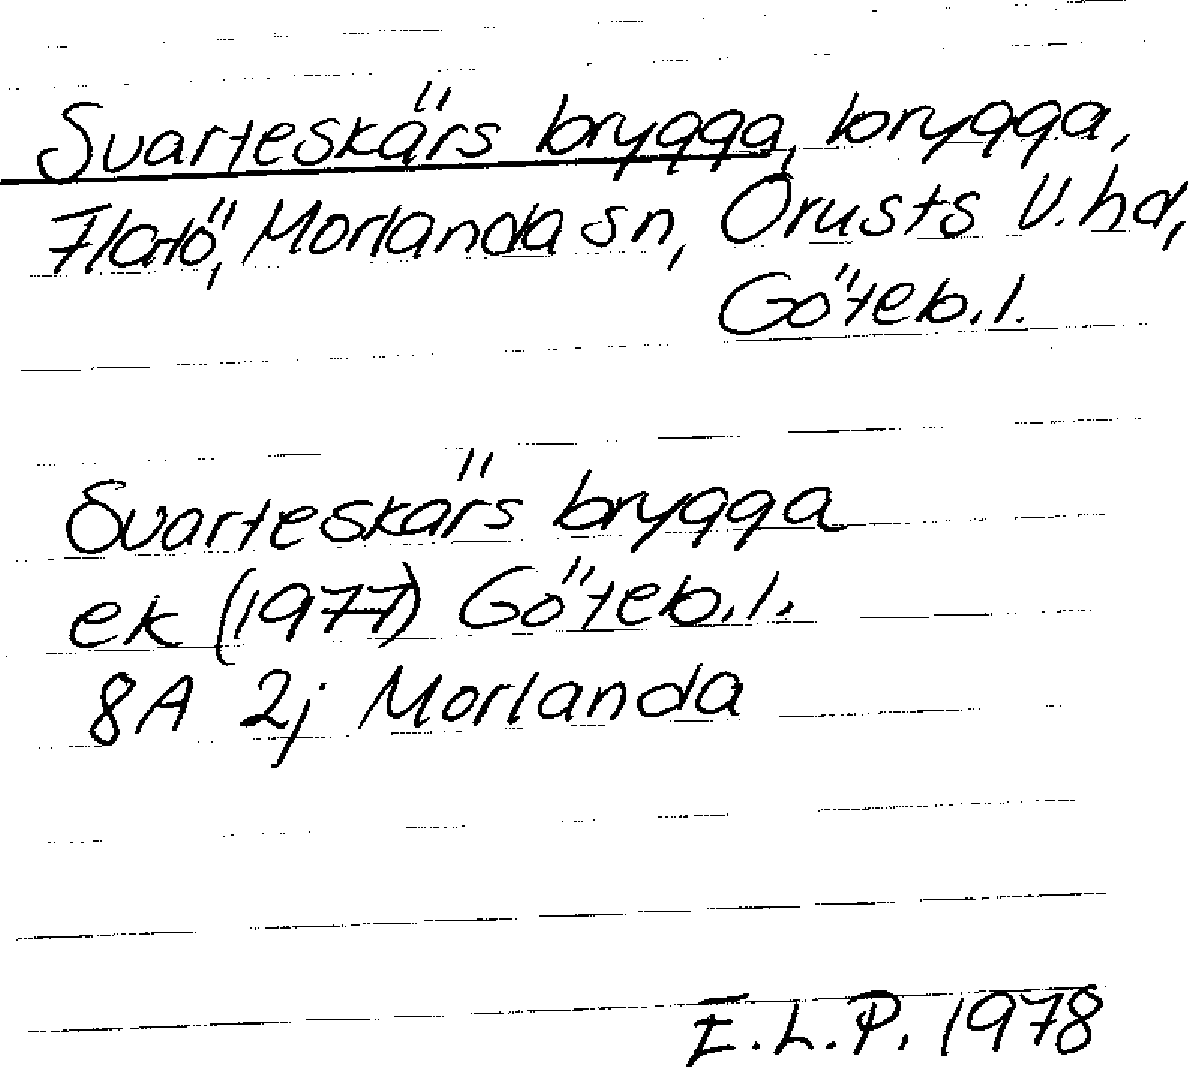 Svarteskärs brygga, brygga,
Flatö, Morlanda sn, Orusts V. hd,
Göteb. l.
Svarteskärs brygga
ek (1977) Göteb. l.
8A 2j Morlanda
E.L.P. 1978